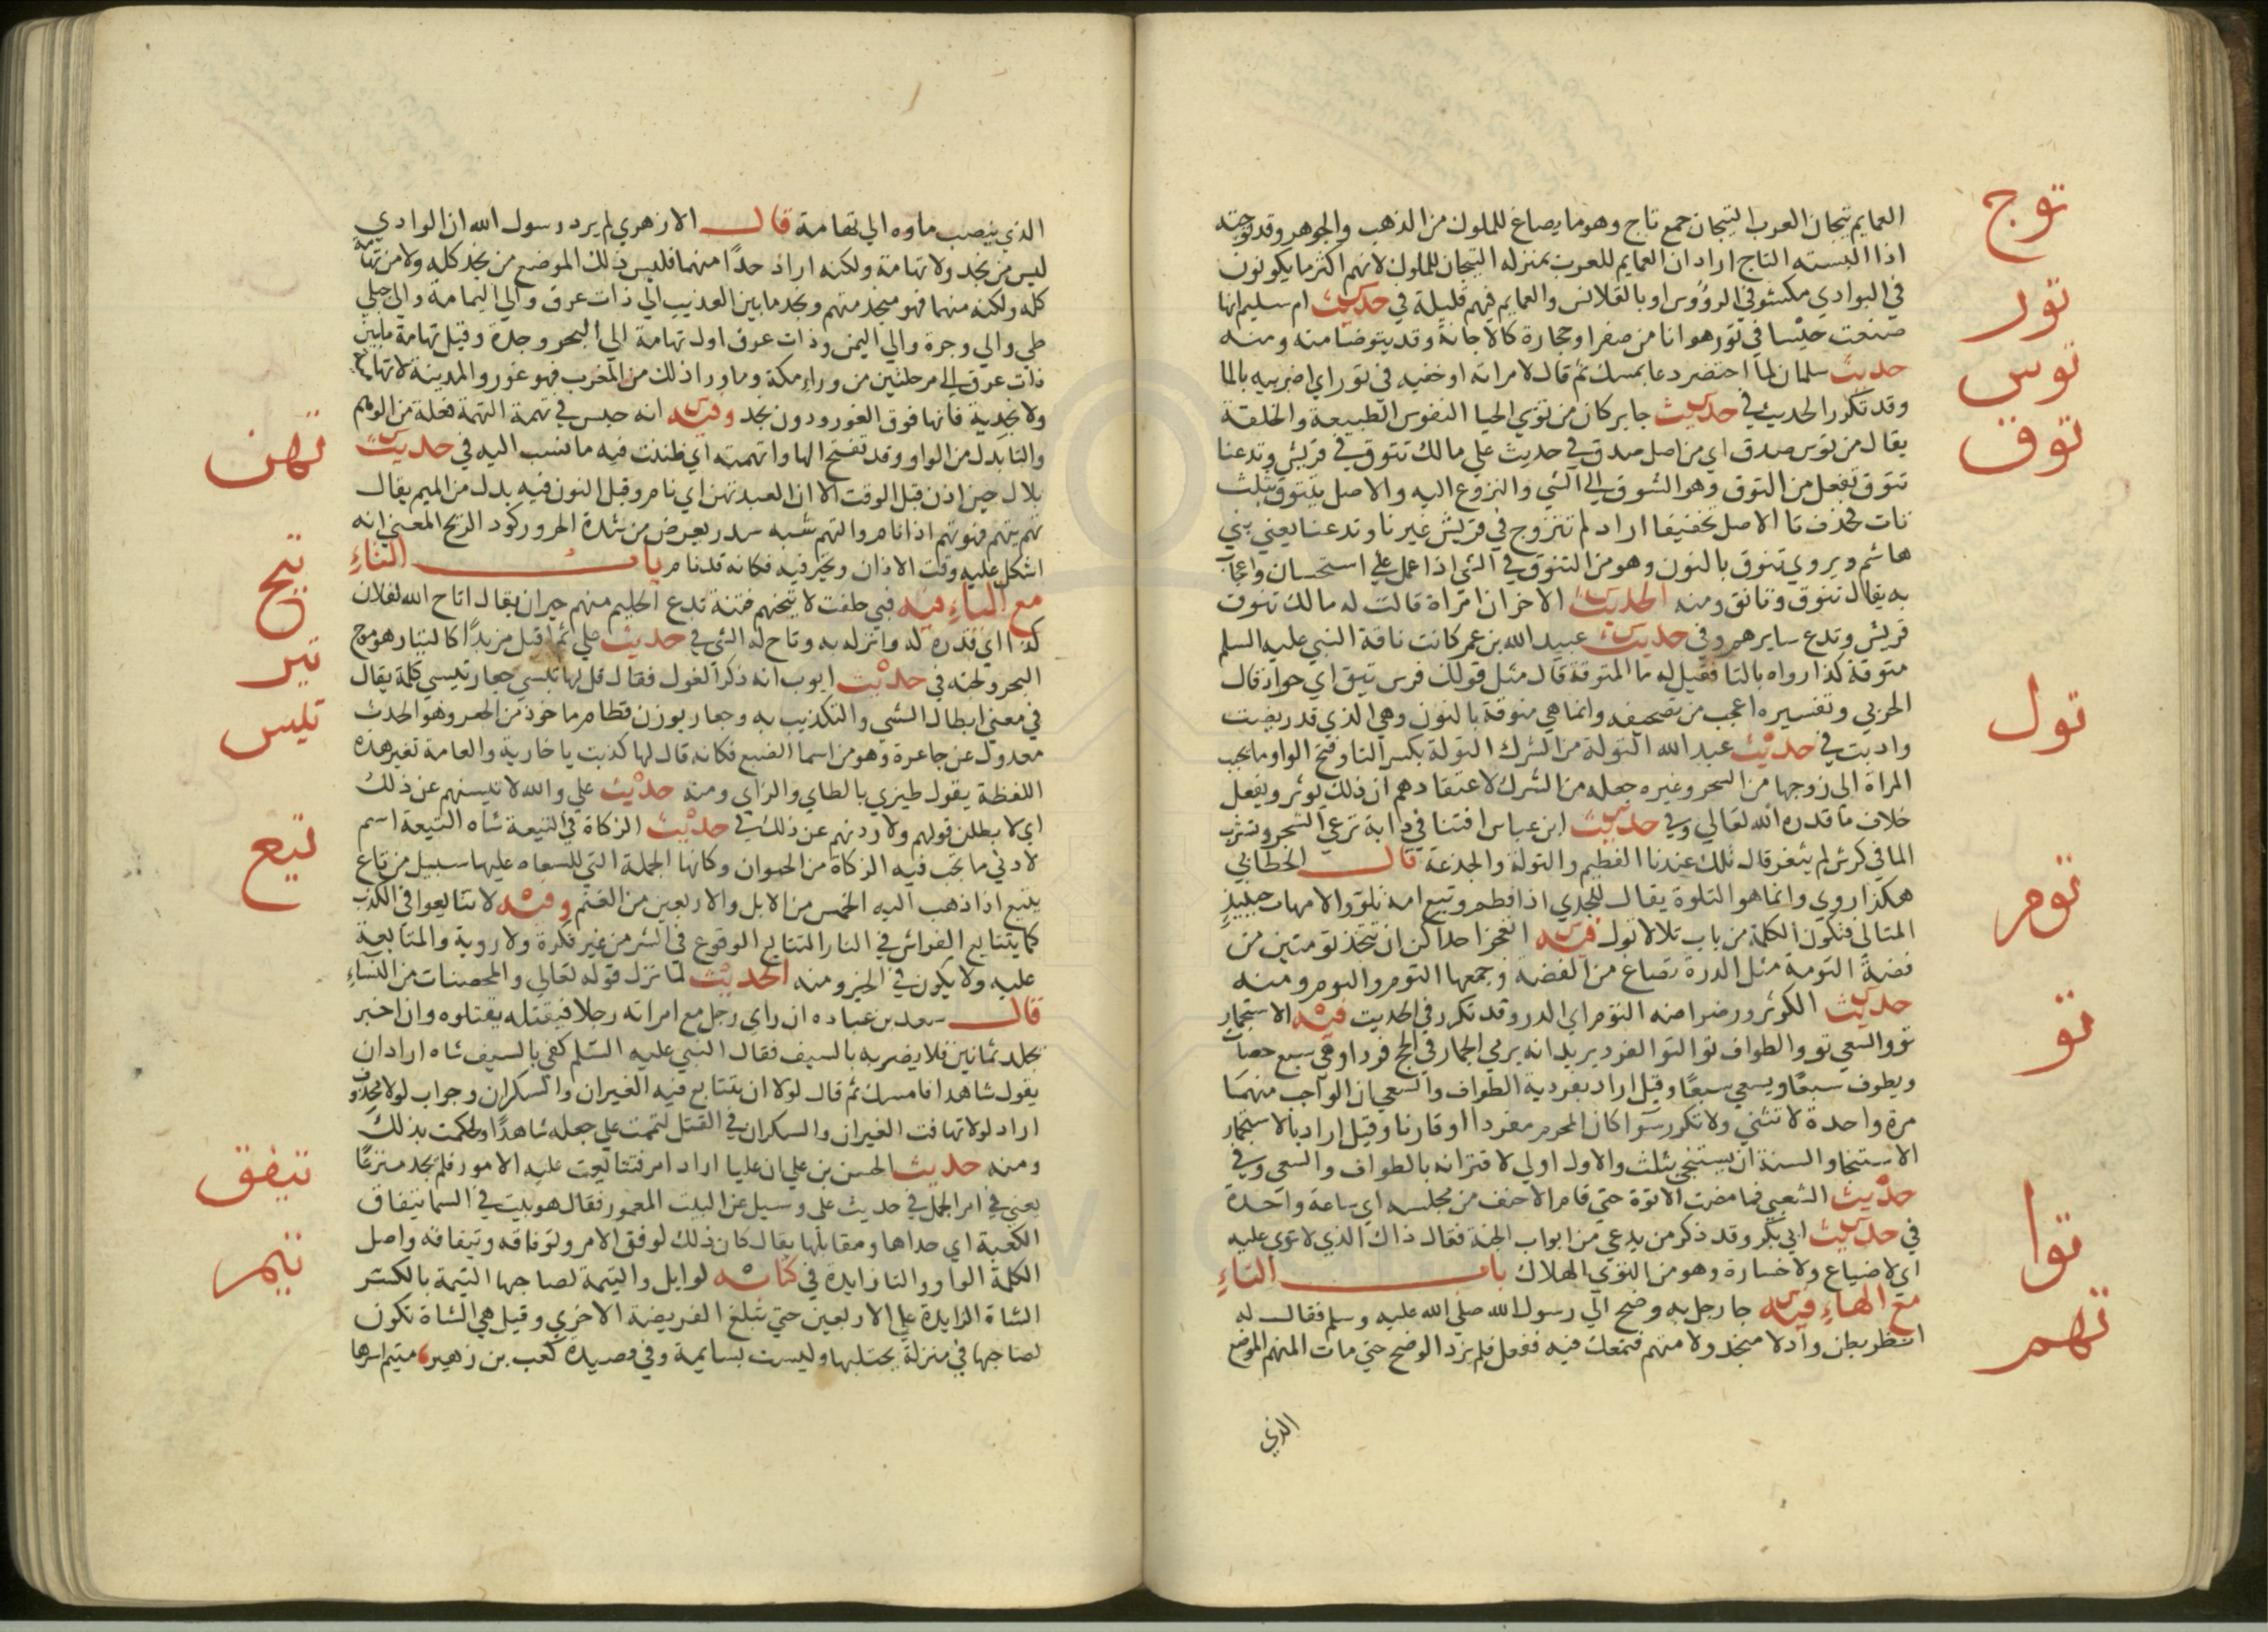 توج
العمايم تيجان العرب التيجان جمع تاج وهو ما يصاغ للملوك من الذهب والجوهر وقد توجته
اذا البسته التاج اراد ان العمايم للعرب بمنزلة التيجان للملوك لانهم اكثر ما يكونون
تور
في البوادي مكشوفي الرؤوس او بالقلانس والعمايم فيهم قليلة في حديث ام سليم انها
صنعت حيسا في تور هو انا من صفر او حجارة كالاجانة وقد يتوضا منه ومنه
توس
حديث سلمان لما احتضر دعا بمسك ثم قال لامراته اوخفيه في تور اي اضربيه بالما
وقد تكرر الحديث في حديث جابر كان من توسي الحيا التوس الطبيعة والخلقة
توق
يقال من توس صدق اي من اصل صدق في حديث علي مالك تتوق في قريش وتدعنا
تتوق تفعل من التوق وهو الشوق الي الشي والنزوع اليه والاصل تتتوق بثلث
تات فحذف تا الاصل تخفيفا اراد لم تتزوج في قريش غيرنا وتدعنا يعني بني
هاشم ويروي تنوق بالنون وهو من التنوق في الشي اذا عمل علي استحسان واعجاب
به يقال تنوق وتانق ومنه الحديث الاخر ان امراة قالت له مالك تتوق
قريش وتدع سايرهم وفي حديث عبيد الله بن عمر كانت ناقة النبي عليه السلم
متوقة كذا رواه بالتا فقيل له ما المتوقة قال مثل قولك فرس تيق اي جواد قال
تول
الحربي وتفسيره اعجب من تصحيفه وانما هي منوقة بالنون وهي الذي قد ريضت
وادبت في حديث عبد الله التولة من الشرك التولة بكسر التا وفتح الواو ما يحبب
المراة الي زوجها من السحر وغيره جعله من الشرك لاعتقادهم ان ذلك يوثر ويفعل
خلاف ما قدره الله تعالي وفي حديث ابن عباس افتنا في دابة ترعي الشجر وتشرب
الما في كرش لم يثغر قال تلك عندنا الفطيم والتولة والجذعة قال الخطابي
توم
هكذا روي وانما هو التلوة يقال للجدي اذا فطم وتبع امه تلو والامهات حينيذ
المتالي فتكون الكلمة من باب تلا لا تول فيه اتعجز احداكن ان تتخذ تومتين من
فضة التومة مثل الدرة تصاغ من الفضة وجمعها التوم والتوم ومنه
تو
حديث الكوثر ورضراضه التوم اي الدر وقد تكرر في الحديث فيه الاستجمار
تو والسعي تو والطواف تو التو الفرد يريد انه يرمي الجمار في الحج فردا وهي سبع حصات
ويطوف سبعا ويسعي سبعا وقيل اراد بفردية الطواف والسعي ان الواجب منهما
مرة واحدة لا تثني ولا تكرر سوا كان المحرم مفردا او قارنا وقيل اراد بالاستجمار
الاستنجا والسنة ان يستنجي بثلث والاول اولي لاقترانه بالطواف والسعي وفي
توا
حديث الشعبي فما مضت الا توة حتي قام الاحنف من مجلسه اي ساعة واحدة
في حديث ابي بكر وقد ذكر من يدعي من ابواب الجنة فقال ذاك الذي لا توي عليه
اي لا ضياع ولا خسارة وهو من التوي الهلاك باب التاء
تهم
مع الهاء فيه جا رجل به وضح الي رسول الله صلي الله عليه وسلم فقال له
انظر بطن واد لا منجد ولا متهم فتمعك فيه ففعل فلم يزد الوضح حتي مات المتهم الموضع
الذي
الذي ينصب ماوه الي تهامة قال الازهري لم يرد رسول الله ان الوادي
ليس من نجد ولا تهامة ولكنه اراد حدا منهما فليس ذلك الموضع من نجد كله ولا من تهامة
كله ولكنه منهما فهو منجد متهم ونجد ما بين العذيب الي ذات عرق والي اليمامة والي جبلي
طي والي وجرة والي اليمن وذات عرق اول تهامة الي البحر وجدة وقيل تهامة ما بين
ذات عرق الي مرحلتين من وراء مكة وما ورا ذلك من المغرب فهو غور والمدينة لا تهامية
ولا نجدية فانها فوق الغور ودون نجد وفيه انه حبس في تهمة التهمة فعلة من الوهم
تهن
والتا بدل من الواو وقد تفتح الها واتهمته اي ظننت فيه ما نسب اليه في حديث
بلال حين اذن قبل الوقت الا ان العبد تهن اي نام وقيل النون فيه بدل من الميم يقال
تهم يتهم فهو تهم اذا نام والتهم شبه سدر يعرض من شدة الحر وركود الريح المعني انه
تيح
اشكل عليه وقت الاذان وتحير فيه فكانه قد نام باب التاء
مع الياء فيه فبي حلفت لاتيحنهم فتنة تدع الحليم منهم حيران يقال اتاح الله لفلان
تير
كذا اي قدره له وانزله به وتاح له الشي في حديث علي ثم اقبل مزبدا كالتيار هو موج
تيس
البحر ولجته في حديث ايوب انه ذكر الغول فقال قل لها تيسي جعار تيسي كلمة يقال
في معني ابطال الشي والتكذيب به وجعار بوزن قطام ماخوذ من الجعر وهو الحدث
معدول عن جاعرة وهو من اسما الضبع فكانه قال لها كذبت يا خارية والعامة تغير هذه
اللفظة يقول طيزي بالطاي والزاي ومنه حديث علي والله لا تيسنهم عن ذلك
تيع
اي لابطلن قولهم ولاردنهم عن ذلك في حديث الزكاة في التيعة شاه التيعة اسم
لادني ما تجب فيه الزكاة من الحيوان وكانها الجملة التي للسعاه عليها سبيل من تاع
يتيع اذا ذهب اليه الخمس من الابل والاربعين من الغنم وفيه لا تتايعوا في الكذب
كما يتتايع الفراش في النار التتايع الوقوع في الشر من غير فكرة ولا روية والمتايعة
عليه ولا يكون في الخير ومنه الحديث لما نزل قوله تعالي والمحصنات من النساء
قال سعد بن عباده ان راي رجل مع امراته رجلا فيقتله يقتلوه وان اخبر
يجلد ثمانين فلا يضربه بالسيف فقال النبي عليه السلم كفي بالسيف شاه اراد ان
يقول شاهدا فامسك ثم قال لولا ان يتتايع فيه الغيران والسكران وجواب لولا محذوف
اراد لولا تهافت الغيران والسكران في القتل لتممت علي جعله شاهدا ولحكمت بذلك
تيفق
ومنه حديث الحسن بن علي ان عليا اراد امر فتتايعت عليه الامور فلم يجد منزعا
يعني في امر الجمل في حديث علي وسيل عن البيت المعمور فقال هو بيت في السما تيفاق
تيم
الكعبة اي حذاها ومقابلها يقال كان ذلك لوفق الامر وتوفاقه وتيفاقه واصل
الكلمة الواو والتا زايدة في كتابه لوايل والتيمة لصاحبها التيمة بالكسر
الشاة الزايدة علي الاربعين حتي تبلغ الفريضة الاخري وقيل هي الشاة تكون
لصاحبها في منزله يحتلبها وليست بسايمة وفي قصيدة كعب بن زهير متيم اسرها